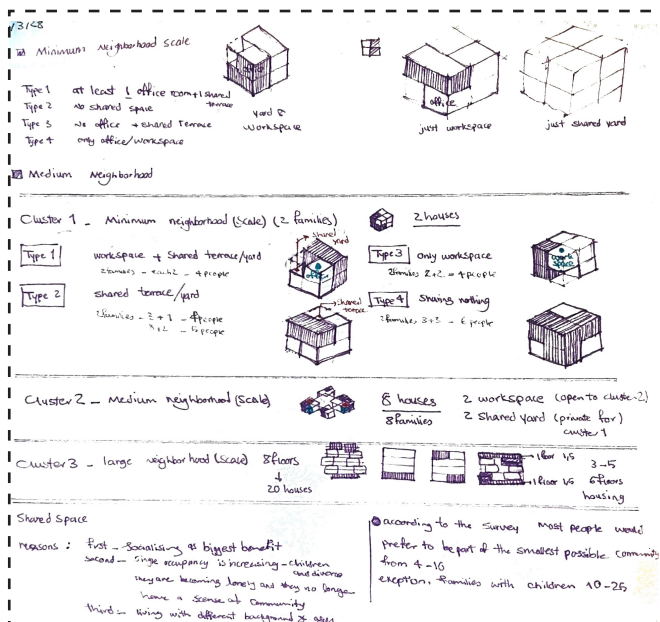 Minimum Neighborhood Scale
Type 1 at least 1 office room + 1 shared terrace
Type 2 no shared space
Type 3 no office + shared terrace
Type 4 only office/workspace
office
yard & workspace
office
just workspace
just shared yard
Medium Neighborhood
Cluster 1 - Minimum neighborhood (scale) (2 families)
2 houses
Type 1 workspace + shared terrace/yard
2 families - each 2 - 4 people
shared yard
office
Type 2 shared terrace/yard
2 families - 2 + 1 - 4 people
3+2 - 5 people
shared terrace
Type 3 only workspace
2 families 2+2 = 4 people
work space
Type 4 Sharing nothing
2 families 3+3 - 6 people
Cluster 2 - Medium neighborhood (scale)
8 houses
8 families
2 workspace (open to cluster 2)
2 shared yard (private for) cluster 1
Cluster 3 - large neighborhood (scale) 8 floors
20 houses
1 floor
1 floor
3-5
6 floors
housing
Shared Space
reasons : first - Socialising as biggest benefit
second - single occupancy is increasing - children and divorce
they are becoming lonely and they no longer
have a scense at community
third - living with different background &
according to the survey most people would
prefer to be part of the smallest possible community
from 4-10
exeption. families with children 10-25